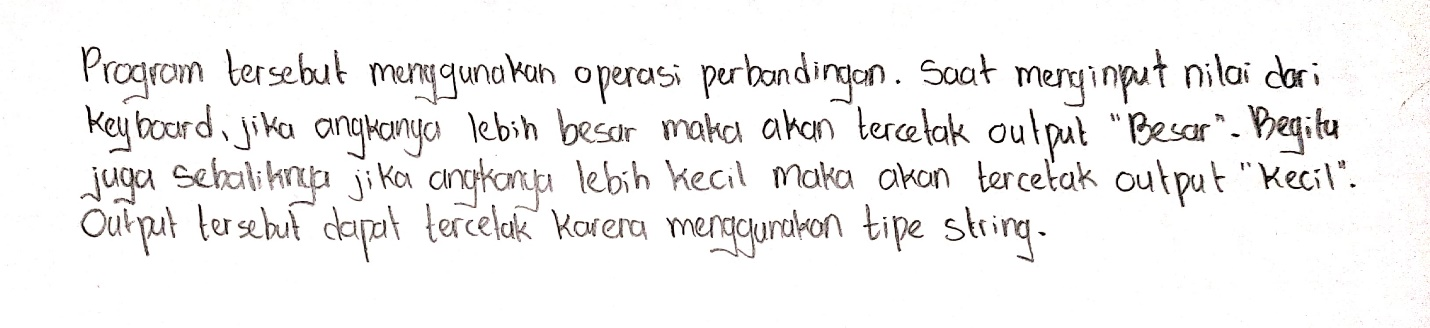 Program tersebut menggunakan operasi perbandingan. Saat menginput nilai dari
Keyboard, jika angkanya lebih besar maka akan tercetak output "Besar". Begitu
juga sebaliknya jika angkanya lebih kecil maka akan tercetak output "Kecil".
Output tersebut dapat tercetak karena menggunakan tipe string.